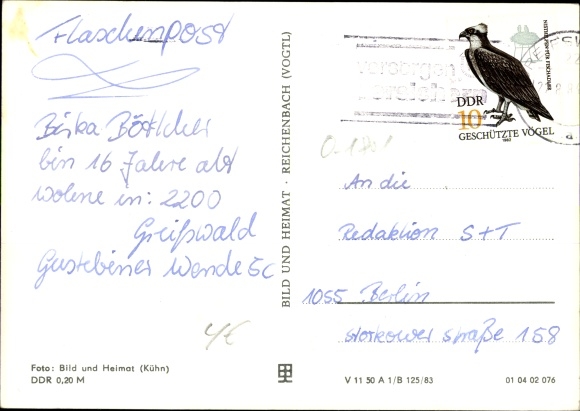 Flaschenpost
Birka Böttcher
bin 16 Jahre alt
wohne in: 2200
Greifswald
Gustebiner Wende 5c
4/€
Foto: Bild und Heimat (Kühn)
DDR 0,20 M
BILD UND HEIMAT · REICHENBACH (VOGTL)
versorgen
DDR
10
GESCHÜTZTE VÖGEL
1982
An die
Redaktion S+T
1055 Berlin
Storkower Straße 158
V 11 50 A 1/B 125/83
01 04 02 076